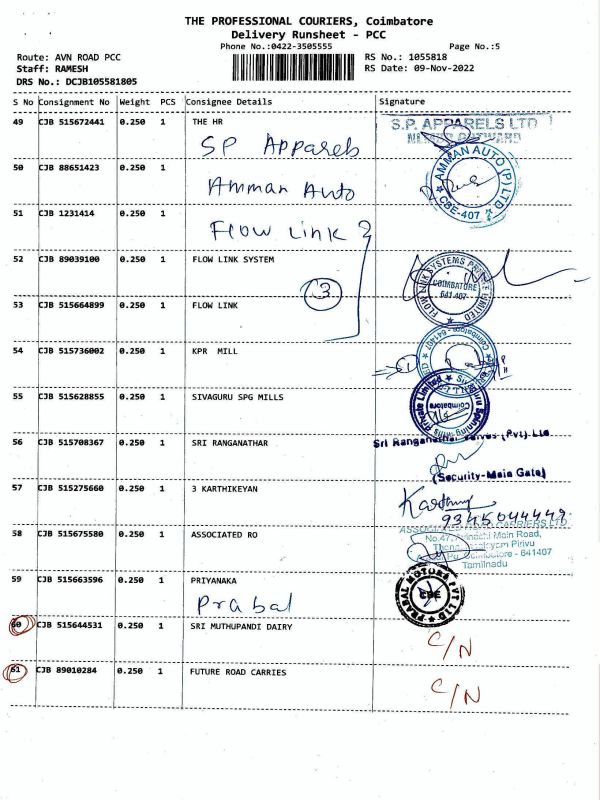 THE PROFESSIONAL COURIERS, Coimbatore
Delivery Runsheet - PCC
Phone No.:0422-3505555 Page No.:5
Route: AVN ROAD PCC RS No.: 1055818
Staff: RAMESH RS Date: 09-Nov-2022
DRS No.: DCJB105581805
S No Consignment No Weight PCS Consignee Details Signature
49 CJB 515672441 0.250 1 THE HR
S.P. APPARELS LTD
SP Apparels
50 CJB 88651423 0.250 1
Amman Auto
AMMAN AUTO (P) LTD
CBE-407
51 CJB 1231414 0.250 1
Flow Link
52 CJB 89039100 0.250 1 FLOW LINK SYSTEM
FLOW LINK SYSTEMS PRIVATE LIMITED
COIMBATORE
641 407
3
53 CJB 515664899 0.250 1 FLOW LINK
54 CJB 515736002 0.250 1 KPR MILL
Coimbatore - 641407
55 CJB 515628855 0.250 1 SIVAGURU SPG MILLS
Sivaguru Spinning Mills Private Limited
Coimbatore
56 CJB 515708367 0.250 1 SRI RANGANATHAR
Sri Ranganathar Valves (Pvt) Ltd
(Security-Main Gate)
57 CJB 515275660 0.250 1 3 KARTHIKEYAN
9345044449
58 CJB 515675580 0.250 1 ASSOCIATED RO
ASSOCIATED ROAD CARRIERS LTD
No.47, Avinashi Main Road,
Pirivu
Coimbatore - 641407
Tamilnadu
59 CJB 515663596 0.250 1 PRIYANAKA
Prabal
PRABAL MOTORS PVT LTD
CBE
60 CJB 515644531 0.250 1 SRI MUTHUPANDI DAIRY
C/N
61 CJB 89010284 0.250 1 FUTURE ROAD CARRIES
C/N